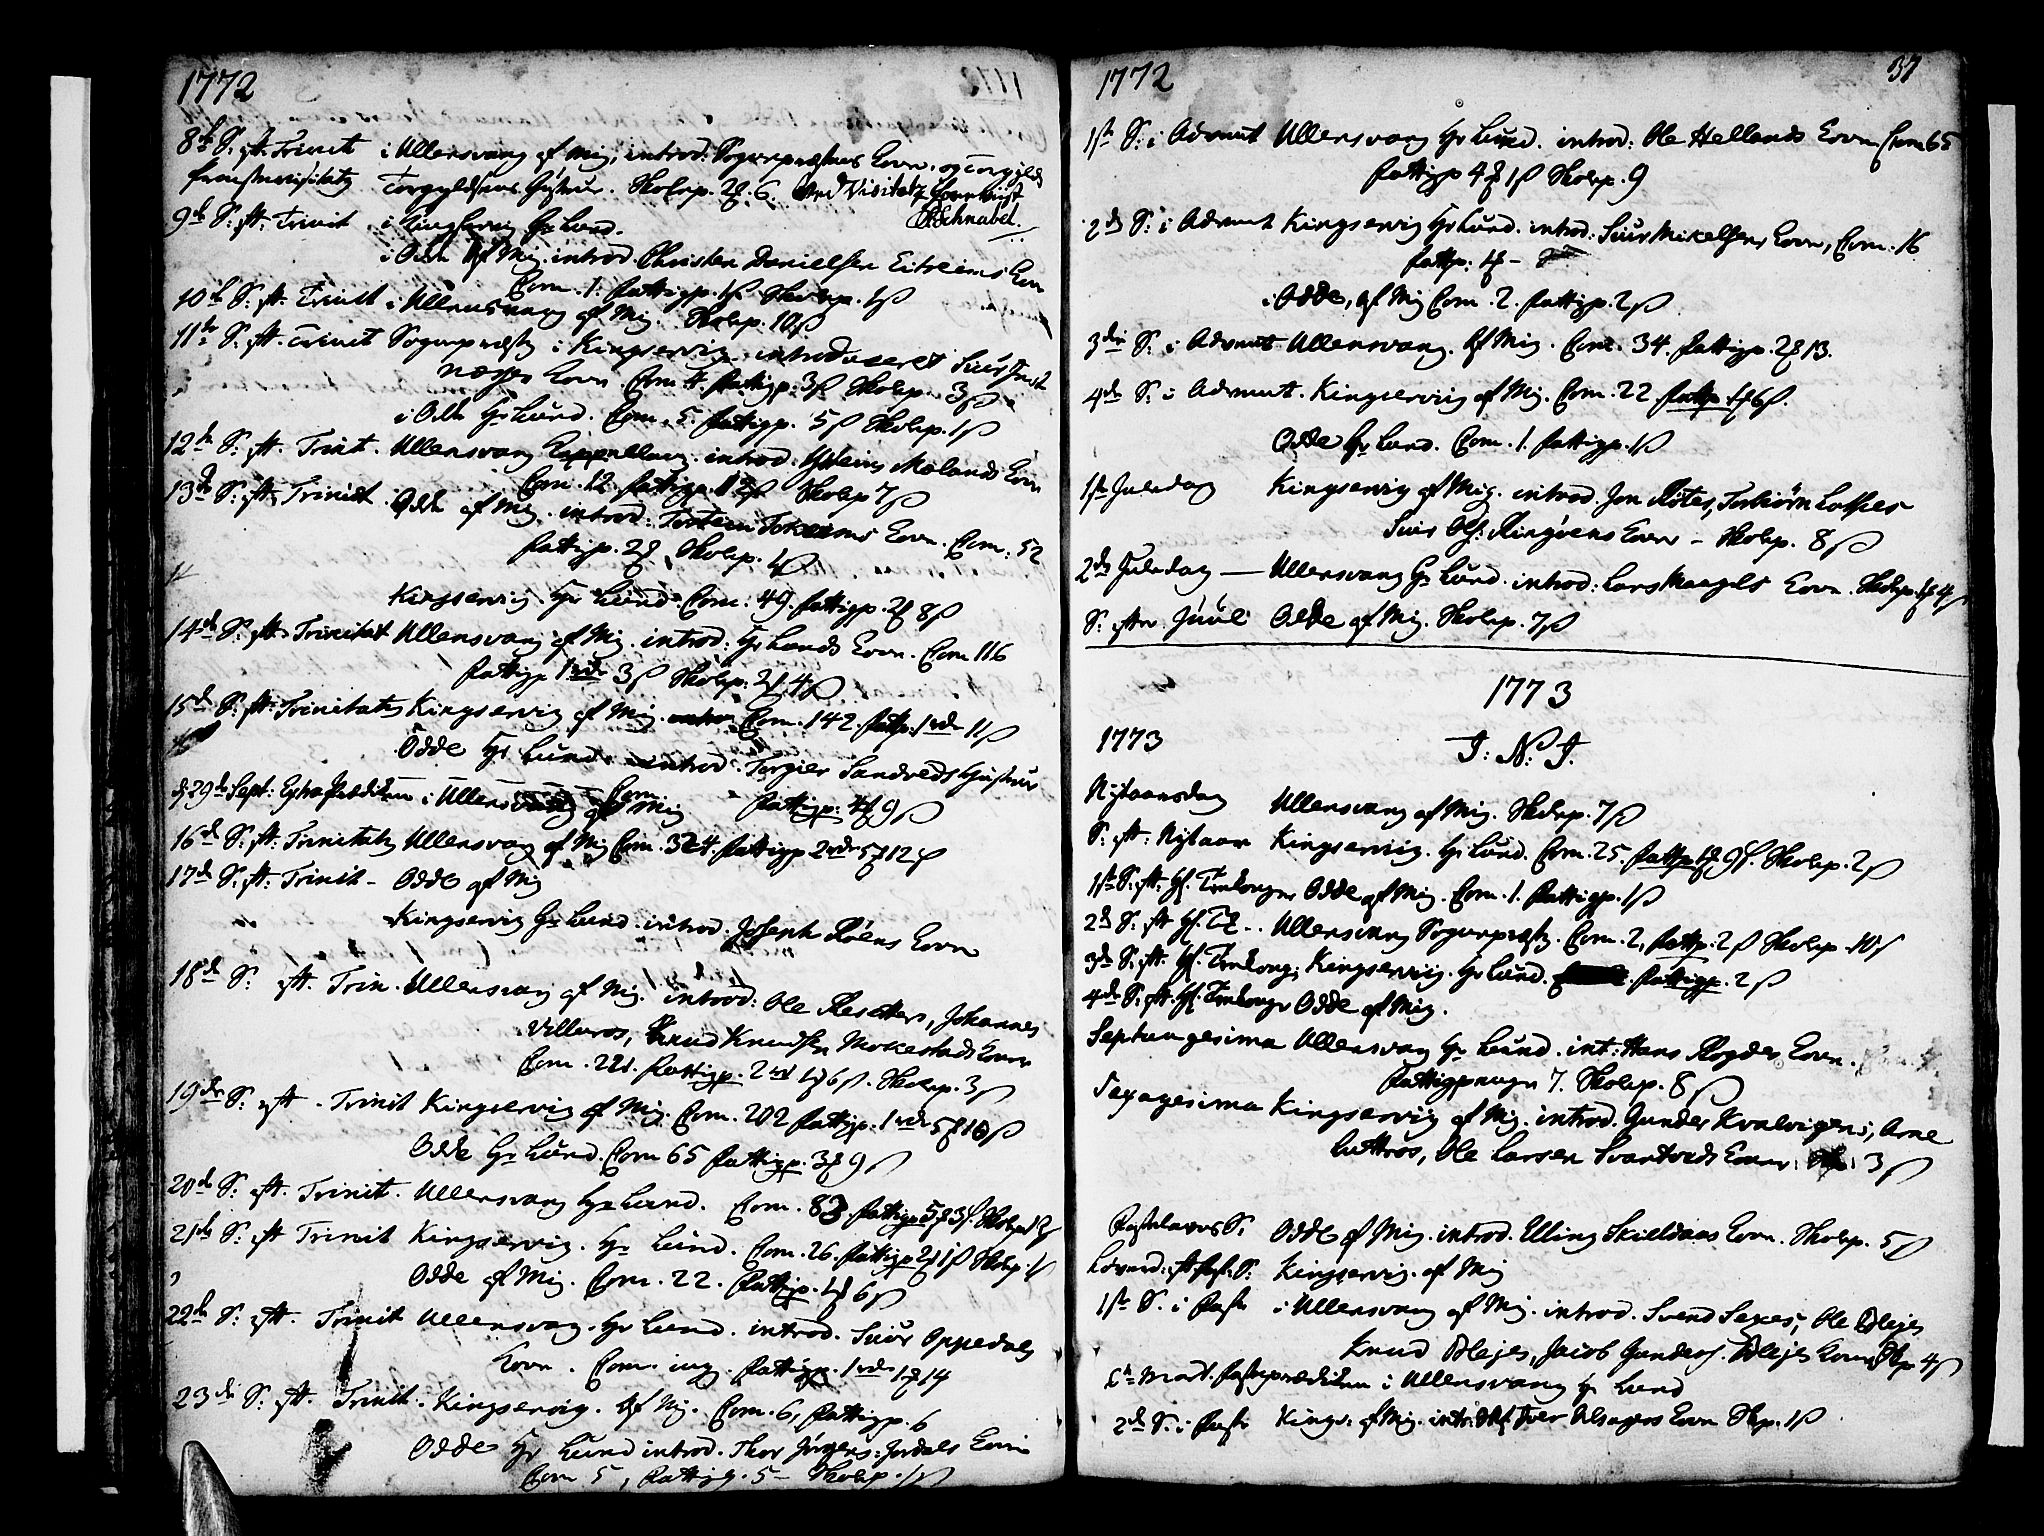 1772
8de S. eft. Trinit i Ullensvang af Mig, introd: Sogneprestens Kone. og Torgyld
Torgyldsens Hustrue. Skolep. 2 6. Ved Visitatz
9de S. eft: Trinit i Kingservig Hr Lund.
Schnabel.
i Odde af Mig. introd. Christen Danielsen Eitreims Kone
Com. 1. fattigp. 1 ß Skolep. 1 ß
10de S. eft. Trinit i Ullensvang af Mig. Skolep. 10 ß
11te S. eft. Trinit Sognepresten i Kingservig introduceret Siur
Kone Com 4. fattigp. 3 ß Skolep. 3 ß
i Odde Hr Lund. Com. 5. fattigp. 5 ß Skolep. 1 ß
12te S. eft. Trinit. Ullensvang Cappellanen. introd. Helius Mælands Kone
Com. 12. fattigp. 12 ß Skolep 7 ß
13de S. eft. Trinitat. Odde af Mig. introd: Torstein Tokeims Kone. Com: 52
fattigp. 2 Skolep. 4 ß
Kingservig. Hr Lund. Com: 49. fattigp. 2 8 ß
14de S. eft. Trinitat Ullensvang af Mig. introd: Hr Lunds Kone. Com 116
fattigp 1 rdr 3 ß Skolep. 2 4 ß
15de S. eft. Trinitatis Kingservig af Mig. Com. 142. fattp: 1 rdr 11 ß
Odde Hr Lund. introd. Torgier Sandveds Hustrue
d. 29de Sept: Extra Prædiken i Ullensvang af Mig Com fattigp: 4 9 ß
16de S. eft. Trinitatis Ullensvang af Mig Com. 324. fattigp 2 rdr 5 12 ß
17de S. eft: Trinit - Odde af Mig
Kingservig Hr Lund. introd. Joseph Røens Kone
18de S: eft. Trin. Ullensvang af Mig. introd: Ole Reisæters, Johannes
Villuros, Knud Knudsen Mokestads Koner
Com. 221. fattigp. 2 rd 1 6 ß. Skolep. 3 ß
19de S: eft. Trinit Kingservig af Mig. Com. 202 fattigp. 1 rdr 5 10 ß
Odde Hr Lund. Com 65 fattigp. 3 9 ß
20de S: eft. Trinit. Ullensvang Hr Lund. Com. 83. fattigp 5 3 ß
21de S: eft Trinit Kingservig. Hr Lund. Com. 26. fattigp 2 1 ß Skolep.
Odde af Mig. Com. 22. fattigp. 1 6 ß
22de S: eft. Trinit Ullensvang. Hr Lund. introd. Siur Oppedals
Kone. Com. ing. fattigp. 1 rdr 1 14
23de S: eft. Trinit. Kingservig. Af Mig. Com. 6, fattigp. 6
Odde Hr Lund introd. Thor Jordals Kone
Com 5, fattigp. 5 - Skolep.
1772 37
1ste S: i Advent Ullensvang Hr Lund. introd: Ole Hellands Kone Com 65
fattigp 4 1 ß Skolep. 9
2de S: i Advent Kingservig Hr Lund. introd: Siur Mikelsens Kone, Com. 16
fattp: 1 -
i Odde, af Mig Com. 2. fattigp. 2 ß
3die S: i Advent Ullensvang. Af Mig. Com. 34. fattigp. 2 13.
4de S: i Advent. Kingservig af Mig. Com. 22 fattp. 1 6 ß.
Odde Hr Lund. Com. 1. fattigp. 1 ß
1ste Juledag Kingservig af Mig. introd. Jon Røtes, Torbiørn Lothes
Siur Ols: Ringøens Koner - Skolep. 8 ß
2den Juledag — Ullensvang Hr Lund. introd: Lars Maagels Kone. Skolep. 4 ß
S: efter Juul Odde af Mig. Skolep. 7 ß
1773
1773 I: N: J.
Nytaarsdag Ullensvang af Mig. Skolep. 7 ß
S. eft. Nytaar Kingservig. Hr Lund. Com. 25. fattp 1 9 ß. Skolep. 2 ß
1ste S: eft: H. Trekonger Odde af Mig. Com. 1. fattigp. 1 ß
2de S. eft H. Tr.. Ullensvang Sognepresten. Com. 2, fattp. 2 ß Skolep. 10 ß
3de S. eft. H. Trekong: Kingservig. Hr Lund. fattigp. 2 ß
4de S. eft. H. Trekonger Odde af Mig.
Septuagesima Ullensvang Hr Lund. int: Hans Rogdes Kone.
fattigpenge 7. Skolep. 8 ß
Sexagesima Kingservig af Mig. introd. Gunder Kvalvigens, Arne
Luttros, Ole Larsen Svartveds Koner. 3 ß
Fastelavns S. Odde af Mig. introd. Elling Skieldaas Kone. Skolep. 5 ß
Løverd: eft. fast. S: Kingservig. af Mig
1ste S. i Faste i Ullensvang af Mig. introd. Svend Sexes, Ole Blejes
Knud Blejes, Jacob Gunders. Blejes Koner Skp 4 ß
Mart. Fasteprædiken i Ullensvang Hr Lund
2de S. i Faste Kings: af Mig. introd: Iver Alsagers Kone Skp. 1 ß